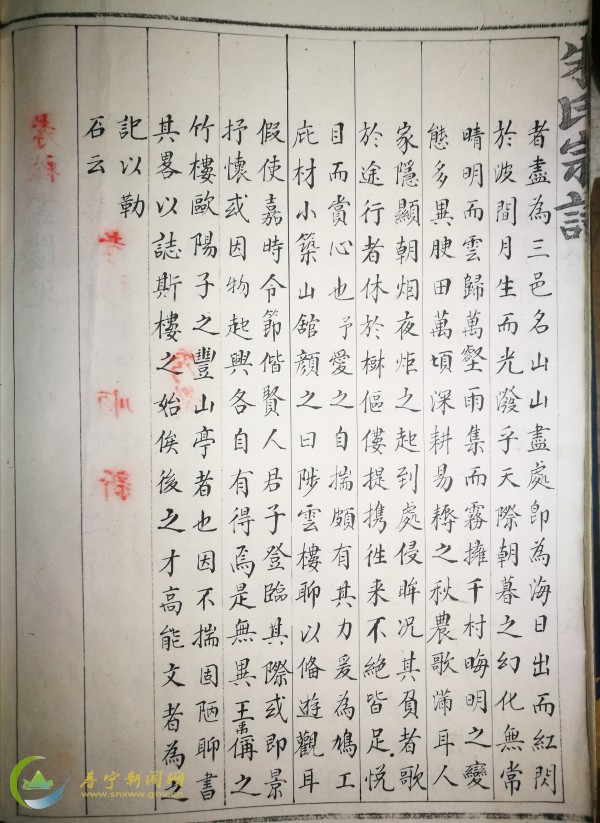 朱氏宗譜
者盡為三邑名山山盡處卽為海日出而紅閃
於波間月生而光潑乎天際朝暮之幻化無常
晴明而雲歸萬壑雨集而霧擁千村晦明之變
態多異腴田萬頃深耕易耨之秋農歌滿耳人
家隱顯朝烟夜炬之起到處侵眸况其負者歌
於途行者休於樹傴僂提携徃来不絕皆足悅
目而賞心也予愛之自揣頗有其力爰為鳩工
庇材小築山舘顔之曰陟雲樓聊以俻遊觀耳
假使嘉時令節偕賢人君子登臨其際或即景
抒懷或因物起興各自有得焉是無異王禹偁之
竹樓歐陽子之豐山亭者也因不揣固陋聊書
其畧以誌斯樓之始俟後之才高能文者為之
記以勒
石云
寿宁新闻网
www.snxww.gov.cn